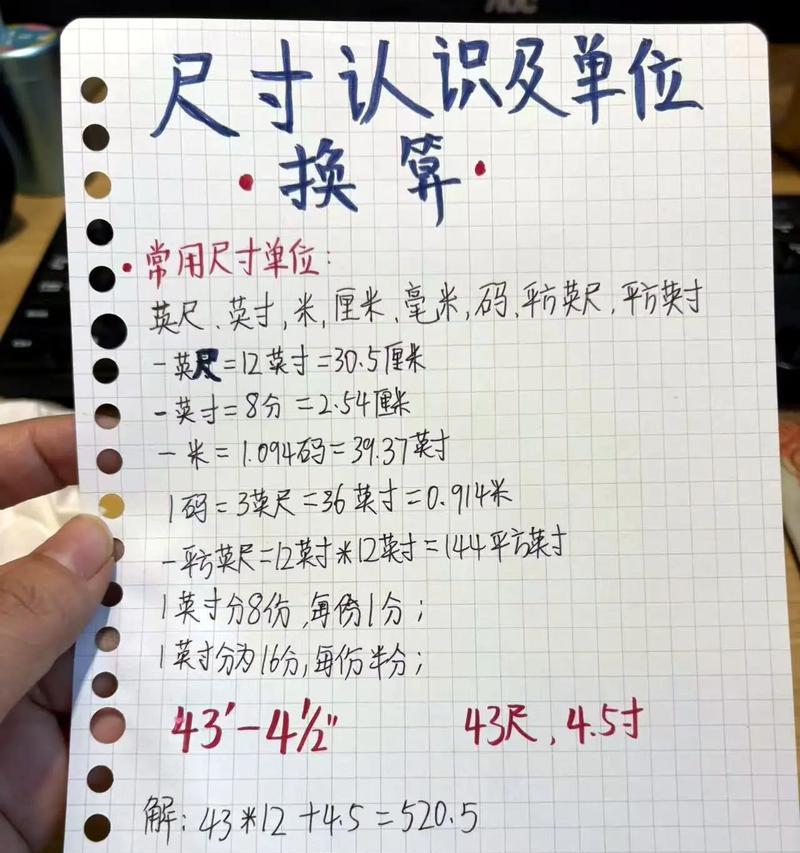 AOC
尺寸认识及单位
·换算·
·常用尺寸单位:
英尺、英寸,米,厘米、毫米,码,平方英尺,平方英寸
一英尺=12英寸=30.5厘米
一英寸=8分=2.54厘米
一米=1.094码=39.37英寸
1码=3英尺=36英寸=0.914米
一平方英尺=12英寸*12英寸=144平方英寸
1英寸分8份,每份1分;
1英寸分为16分,每份半分;
43'-4½" 43尺,4.5寸
解:43*12+4.5=520.5